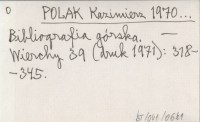 0 POLAK Kazimierz 1970...
Bibliografia górska. —
Wierchy 39 (druk 1971): 318-
-345.